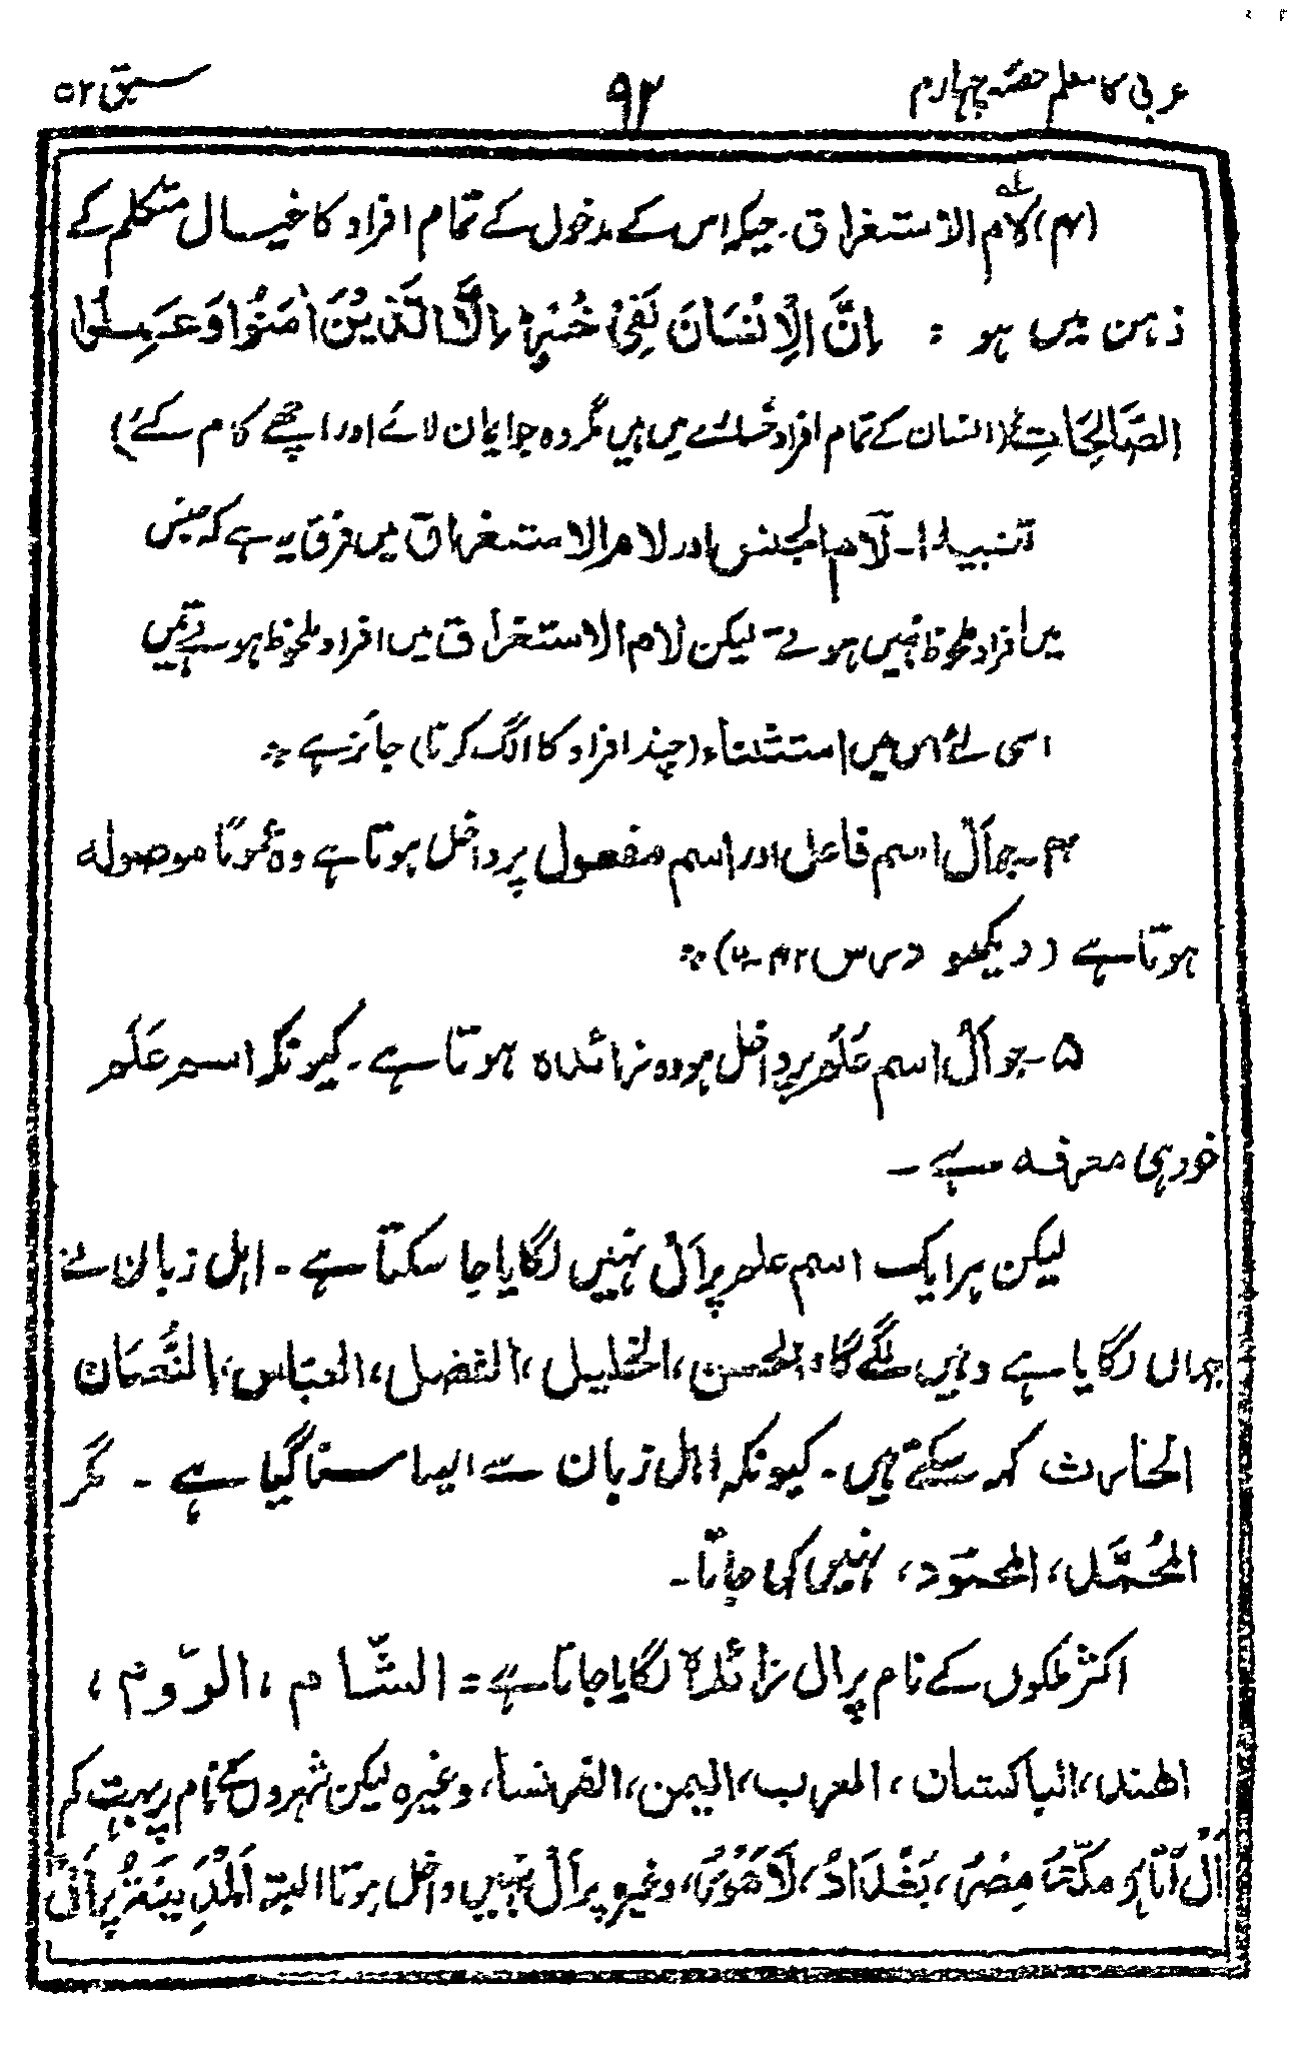 عربی کا معلم حصّہ چہارم ۹۲ سبق ۵۲
(۴) لام الاستغراق۔ جبکہ اس کے مدخول کے تمام افراد کا خیال متکلم کے
ذہن میں ہو : اِنَّ الْاِنْسَانَ لَفِیْ خُسْرٍ اِلَّا الَّذِیْنَ اٰمَنُوْا وَعَمِلُوا
الصَّالِحَاتِ (انسان کے تمام افراد خسارے میں ہیں مگر وہ جو ایمان لائے اور اچھے کام کئے)
تنبیہ ۱۔ لام الجنس اور لام الاستغراق میں فرق یہ ہے کہ جنس
میں افراد ملحوظ نہیں ہوتے۔ لیکن لام الاستغراق میں افراد ملحوظ ہوتے ہیں
اسی لئے اس میں استثناء (چند افراد کا الگ کرنا) جائز ہے ؞
۴۔ جو اَلْ اسم فاعل اور اسم مفعول پر داخل ہوتا ہے وہ عموماً موصولہ
ہوتا ہے (دیکھو درس ۴۲-۷) ؞
۵۔ جو اَلْ اسم عَلَم پر داخل ہو وہ زائدہ ہوتا ہے۔ کیونکہ اسم عَلَم
خود ہی معرفہ ہے۔
لیکن ہر ایک اسم علم پر اَلْ نہیں لگایا جا سکتا ہے۔ اہل زبان نے
جہاں لگایا ہے وہیں لگے گا: الحسن، الخلیل، الفضل، العباس، النُّعمان
الحارث کہہ سکتے ہیں۔ کیونکہ اہل زبان سے ایسا سنا گیا ہے۔ مگر
المُحَمَّد، المحمود، نہیں کہی جاتا۔
اکثر ملکوں کے نام پر ال زائدہ لگایا جاتا ہے : الشّام، الرّوم،
الهند، الباکستان، العرب، الیمن، الفرنسا، وغیرہ لیکن شہروں کے نام پر بہت کم
اَلْ آتا ہے مکّۃ، مِصْرُ، بَغْدَادُ، لَاهُوْرُ، وغیرہ پر اَلْ نہیں داخل ہوتا البتہ اَلْمَدِیْنَۃُ پر اَلْ